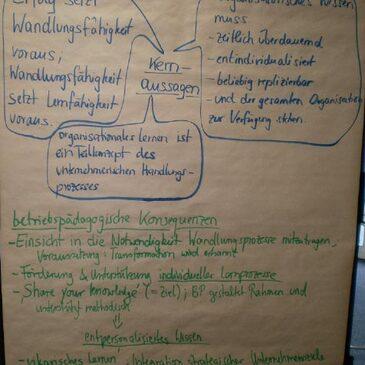 Erfolg setzt
Wandlungsfähigkeit
voraus,
Wandlungsfähigkeit
setzt Lernfähigkeit
voraus.
Kern-
aussagen
organisationales Wissen
muss
- zeitlich überdauernd
- entindividualisiert
- beliebig replizierbar
- und der gesamten Organisation
zur Verfügung stehen.
organisationales Lernen ist
ein Teilkonzept des
unternehmerischen Handlungs-
prozesses
betriebspädagogische Konsequenzen
- Einsicht in die Notwendigkeit Wandlungsprozesse mitzutragen,
Voraussetzung: Transformation wird erkannt
- Förderung & Unterstützung individueller Lernprozesse
- 'Share your knowledge' (= Ziel); BP gestaltet Rahmen und
unterstützt methodisch
⇓
entpersonalisiertes Wissen
- Lernen': Integration strategischer Unternehmensziele